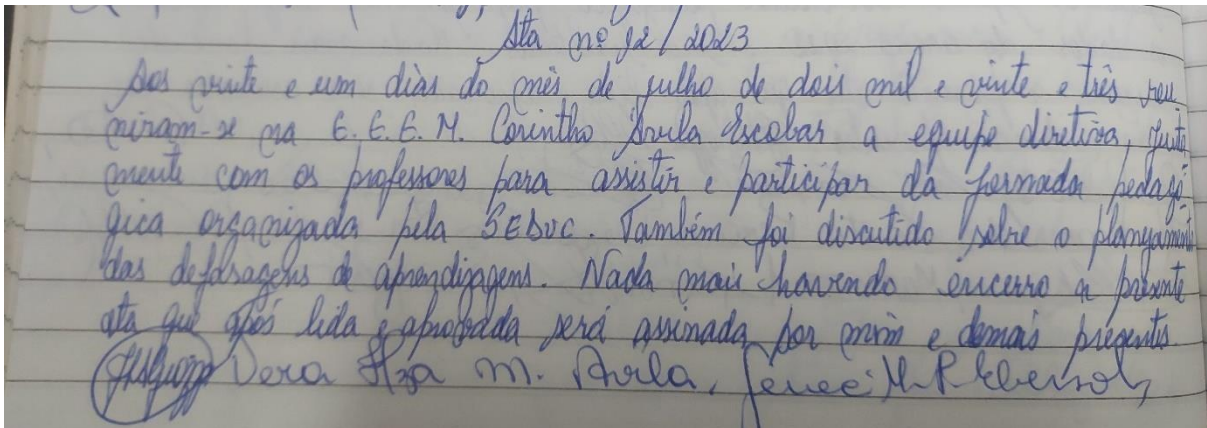 Ata nº 12/2023
Aos vinte e um dias do mês de julho de dois mil e vinte e três reu
niram-se na E.E.E.M. Corintho Ávila Escobar a equipe diretiva, junta
mente com os professores para assistir e participar da jornada pedagó
gica organizada pela SEDUC. Também foi discutido sobre o planejamento
das defasagens de aprendizagens. Nada mais havendo encerro a presente
ata que após lida e aprovada será assinada por mim e demais presentes.
Vera M. Avila,